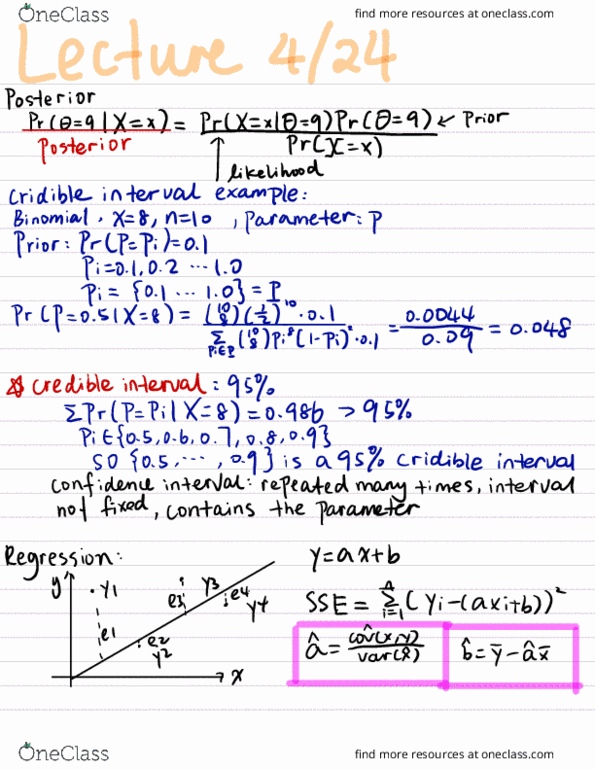 OneClass
find more resources at oneclass.com
Lecture 4/24
Posterior
Pr(θ=9|X=x) = Pr(X=x|θ=9)Pr(θ=9) ← Prior
Posterior Pr(X=x)
likelihood
Cridible interval example:
Binomial, X=8, n=10, parameter: P
Prior: Pr(P=Pi)=0.1
Pi=0.1, 0.2 ... 1.0
Pi = {0.1 ... 1.0} = P
Pr(P=0.5|X=8) = (10 8)(1/2)^10 · 0.1 / Σ Pi∈P (10 8)Pi^8(1-Pi)^2·0.1 = 0.0044 / 0.09 = 0.048
☆ credible interval: 95%
ΣPr(P=Pi|X=8)=0.986 > 95%
Pi∈{0.5,0.6,0.7,0.8,0.9}
SO {0.5,...,0.9} is a 95% cridible interval
confidence interval: repeated many times, interval
not fixed, contains the parameter
Regression:
y
x
y1
e1
e2
y2
e3
y3
e4
y4
y=ax+b
SSE = Σ i=1 n (yi-(axi+b))²
â = cov̂(x,y) / var(x̂)
b̂ = ȳ - âx̄
OneClass
find more resources at oneclass.com